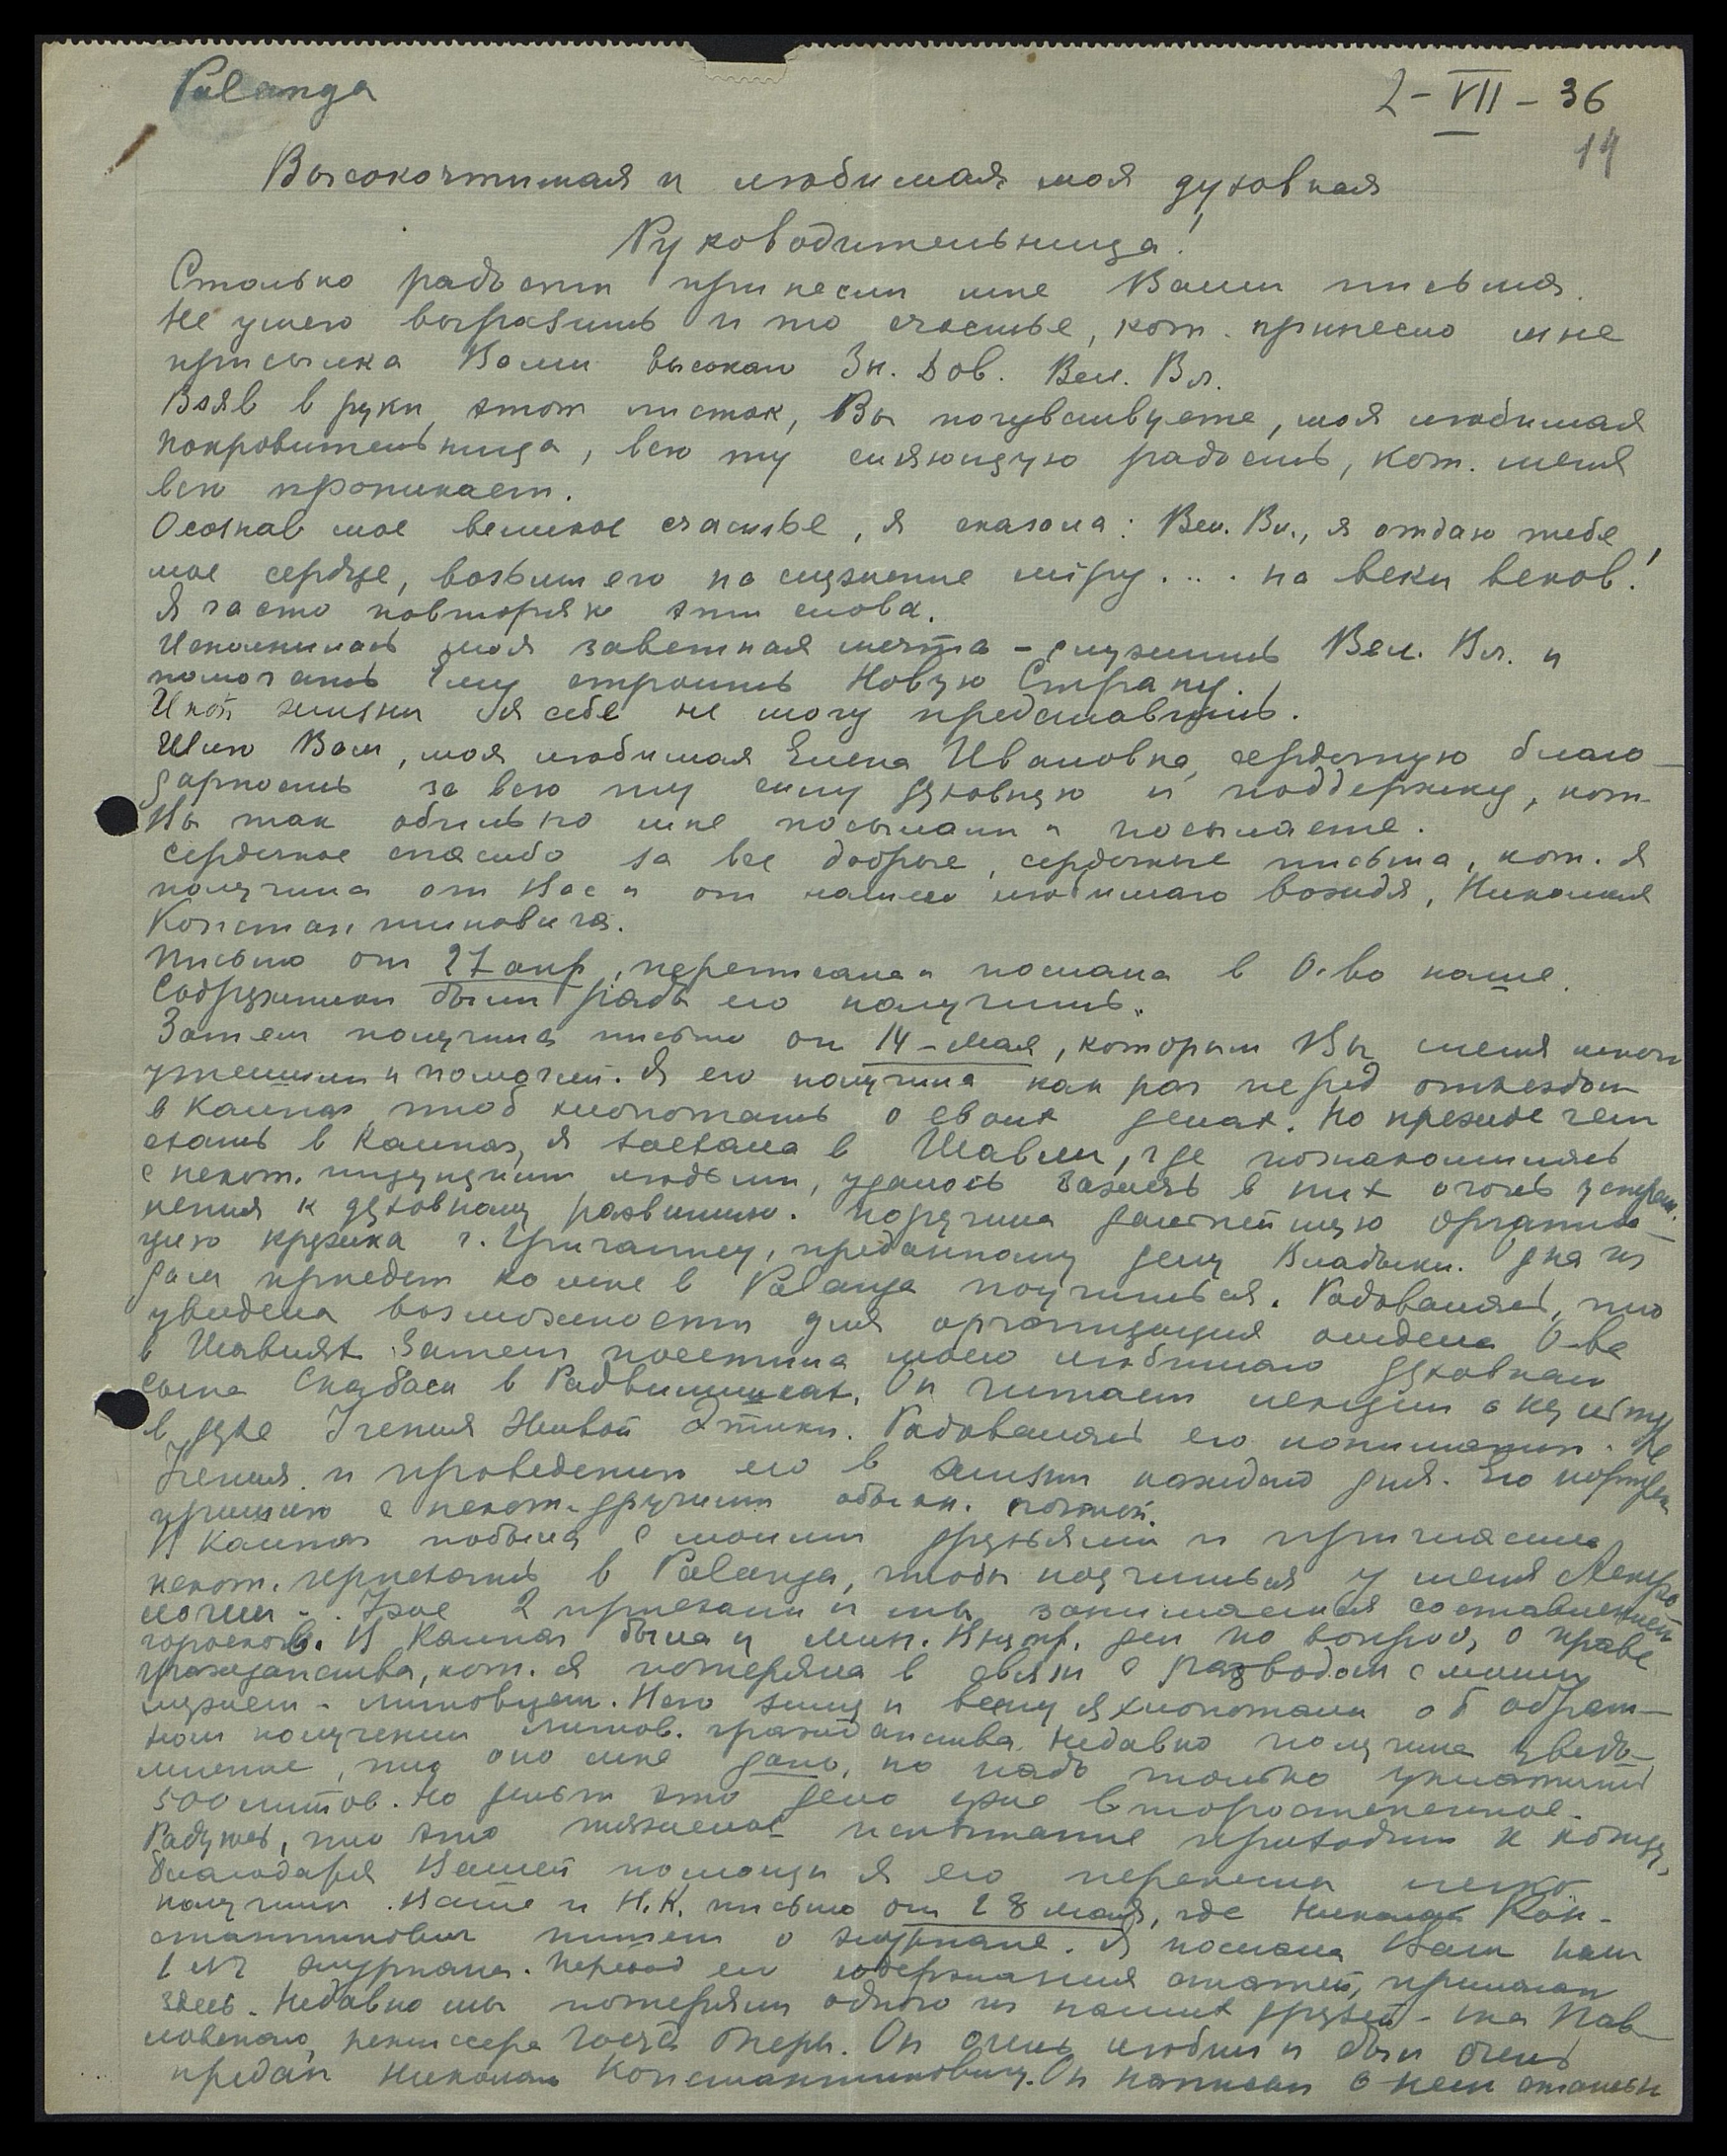 Palanga
2-VII-36
14
Высокочтимая и любимая моя духовная
Руководительница!
Столько радости принесли мне Ваши письма.
Не умею выразить и то счастье, кот. принесло мне
присылка Вами высокаго Зн. Дов. Вел. Вл.
Взяв в руки этот листок, Вы почувствуете, моя любимая
покровительница, всю ту сияющую радость, кот. меня
всю проникает.
Осознав мое великое счастье, я сказала: Вел. Вл., я отдаю тебе
мое сердце, возьми его на служение міру.... на веки веков!
Я часто повторяю эти слова.
Исполнилась моя заветная мечта - служить Вел. Вл. и
помогать Ему строить Новую Страну.
Иной жизни я себе не могу представить.
Шлю Вам, моя любимая Елена Ивановна, сердечную благо-
дарность за всю ту силу духовную и поддержку, кот.
Вы так обильно мне посылали и посылаете.
Сердечное спасибо за все добрые, сердечные письма, кот. я
получила от Вас и от нашего любимаго вождя, Николая
Константиновича.
Письмо от 27 апр. переписала и послала в О-во наше.
Содружники были рады его получить.
Затем получила письмо от 14-мая, которым Вы меня много
утешили и помогли. Я его получила как раз перед отъездом
в Каунас, чтоб хлопотать о своих делах. Но прежде чем
ехать в Каунас, я заехала в Шавли, где познакомилась
с некот. ищущими людьми, удалось зажечь в них огонь устрем-
ления к духовному развитию. Поручила дальнейшую организа-
цию кружка г. Григайтису, преданному делу Владыки. Одна из
дам приедет ко мне в Palanga поучиться. Радовалась, что
увидела возможности для организации отдела О-ва
в Шавлях. Затем посетила моего любимаго духовнаго
сына Скабаса в Радвилишках. Он читает лекции о культуре
в духе Учения Живой Этики. Радовалась его пониманию
Учения и проведению его в жизни каждаго дня. Его портрет
пришлю с некот. другими обыкн. почтой.
В Каунас побыла с моими друзьями и пригласила
некот. приехать в Palanga, чтобы поучиться у меня Астро-
логии. Уже 2 приехали и мы занимаемся составлением
гороскопов. В Каунас была у Мин. Внутр. дел по вопросу о праве
гражданства, кот. я потеряла в связи с разводом с моим
мужем - литовцем. Всю зиму и весну я хлопотала об обрат-
ном получении литов. гражданства. Недавно получила уведо-
мление, что оно мне дано, но надо только уплатить
500 литов. Но деньги это дело уже второстепенное.
Радуюсь, что это тяжелое испытание приходит к концу,
благодаря Вашей помощи я его перенесла легко.
Получили Ваше и Н.К. письмо от 28 мая, где Николай Кон-
стантинович пишет о журнале. Я послала Вам наш
1 № журнала. Перевод его содержания статей, прилагаю
здесь. Недавно мы потеряли одного из наших друзей - г-на Пав-
ловскаго, режиссера Госуд. Оперы. Он очень любил и был очень
предан Николаю Константиновичу. Он написал о нем статьи